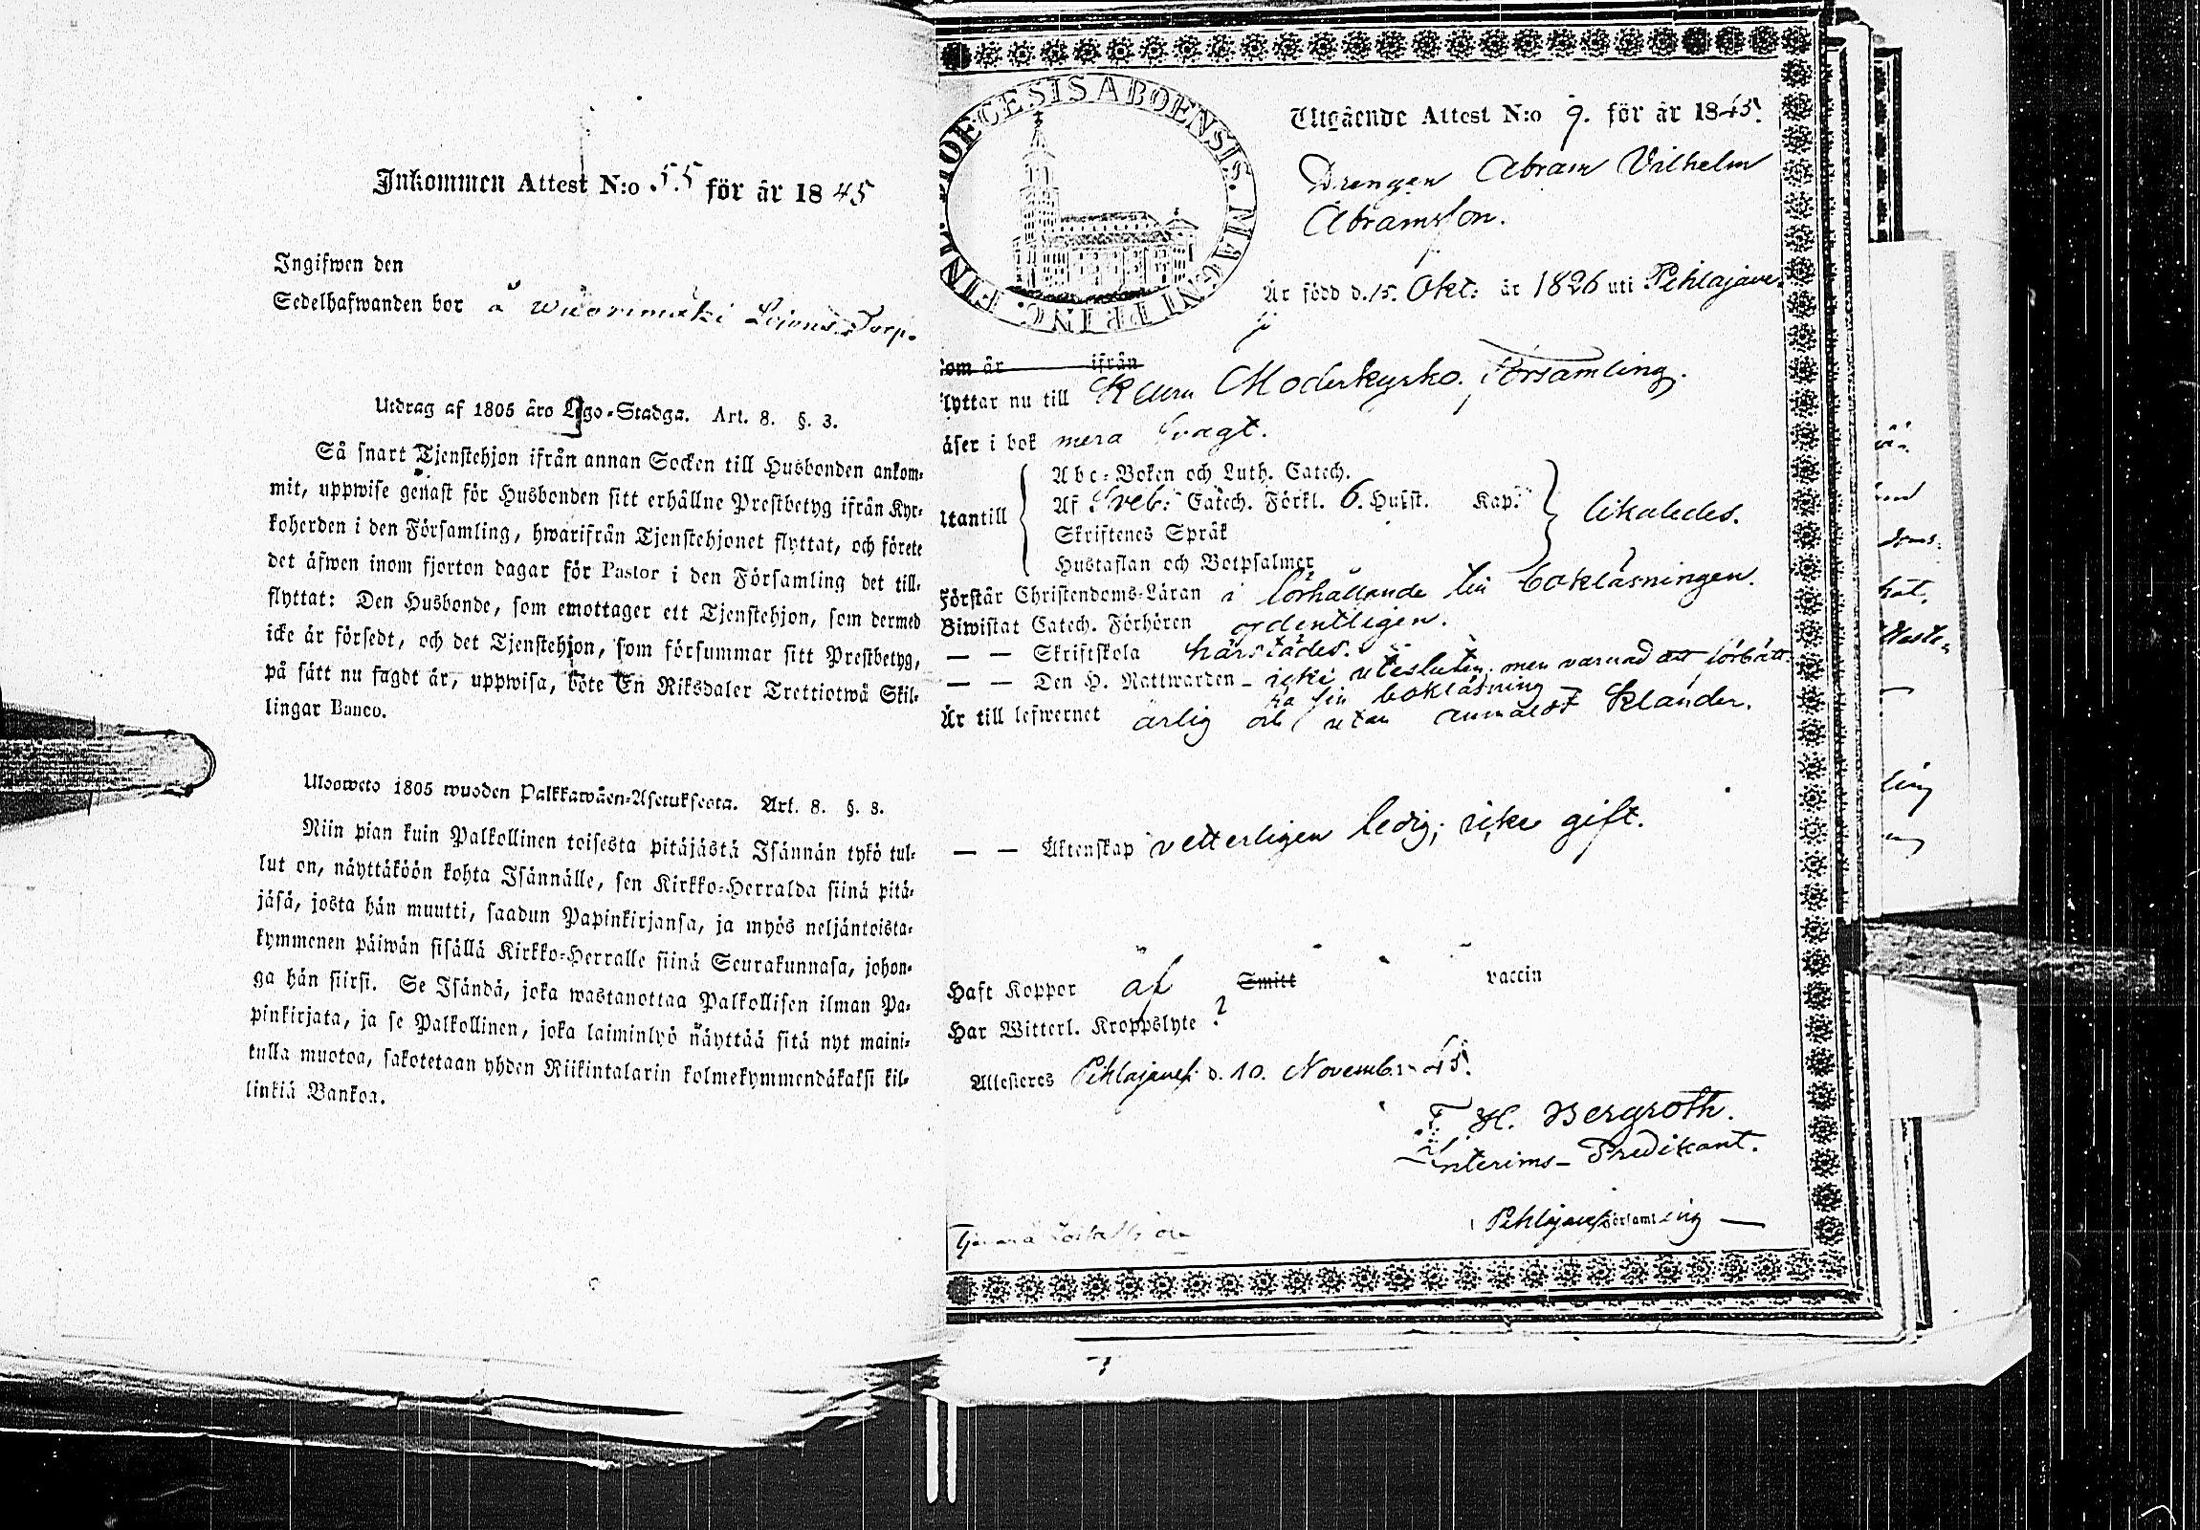 Inkommen Attest N:o 55 för år 1845
Ingifwen den
Sedelhafwanden bor å Torp.
Utdrag af 1805 års Lego-Stadga. Art. 8. §. 3.
Så snart Tjenstehjon ifrån annan Socken till Husbonden ankom-
mit, uppwise genast för Husbonden sitt erhållne Prestbetyg ifrån Kyr-
koherden i den Församling, hwarifrån Tjenstehjonet flyttat, och förete
det äfwen inom fjorton dagar för Pastor i den Församling det till-
flyttat: Den Husbonde, som emottager ett Tjenstehjon, som dermed
icke är försedt, och det Tjenstehjon, som försummar sitt Prestbetyg,
på sätt nu sagdt är, uppwisa, böte En Riksdaler Trettiotwå Skil-
lingar Banco.
Ulosweto 1805 wuoden Palkkawäen-Asetuksesta. Art. 8. §. 3.
Niin pian kuin Palkollinen toisesta pitäjästä Isännän tykö tul-
lut on, näyttäköön kohta Isännälle, sen Kirkko-Herralda siinä pitä-
jäsä, josta hän muutti, saadun Papinkirjansa, ja myös neljäntoista-
kymmenen päiwän sisällä Kirkko-Herralle siinä Seurakunnasa, johon-
ga hän siirsi. Se Isändä, joka wastanottaa Palkollisen ilman Pa-
pinkirjata, ja se Palkollinen, joka laiminlyö näyttää sitä nyt maini-
tulla muotoa, sakotetaan yhden Riikintalarin kolmekymmendäkaksi kil-
linkiä Bankoa.
DIOECESIS ABOENSIS. MAGNI PRINC. FINL.
Utgående Attest N:o 9. för år 1845.
Drengen Abram Vilhelm
Abramsson.
Är född d. 15. Okt: år 1826 uti Pehlajave-
som är ifrån
flyttar nu till Moderkyrko Församling.
läser i bok mera svagt.
Abc-Boken och Luth. Catech.
utantill Af Sveb: Catech. Förkl. 6. Husst. Kap. likaledes.
Skriftenes Språk
Hustaflan och Botpsalmer
Förstår Christendoms-Läran i förhållande till bokläsningen.
Biwistat Catech. Förhören ordentligen.
— — Skriftskola härstädes.
— — Den H. Nattwarden - icke utesluten, men varnad att förbätt-
ra sin bokläsning
Är till lefwernet ärlig och utan anmäldt klander.
— — Äktenskap vetterligen ledig; icke gift.
Haft Koppor af Smitt vaccin
Har Witterl. Kroppslyte ?
Attesteres Pehlajavesi d. 10. Novemb. 45.
F. H. Bergroth.
Interims-Predikant.
Pehlajavesi Församling